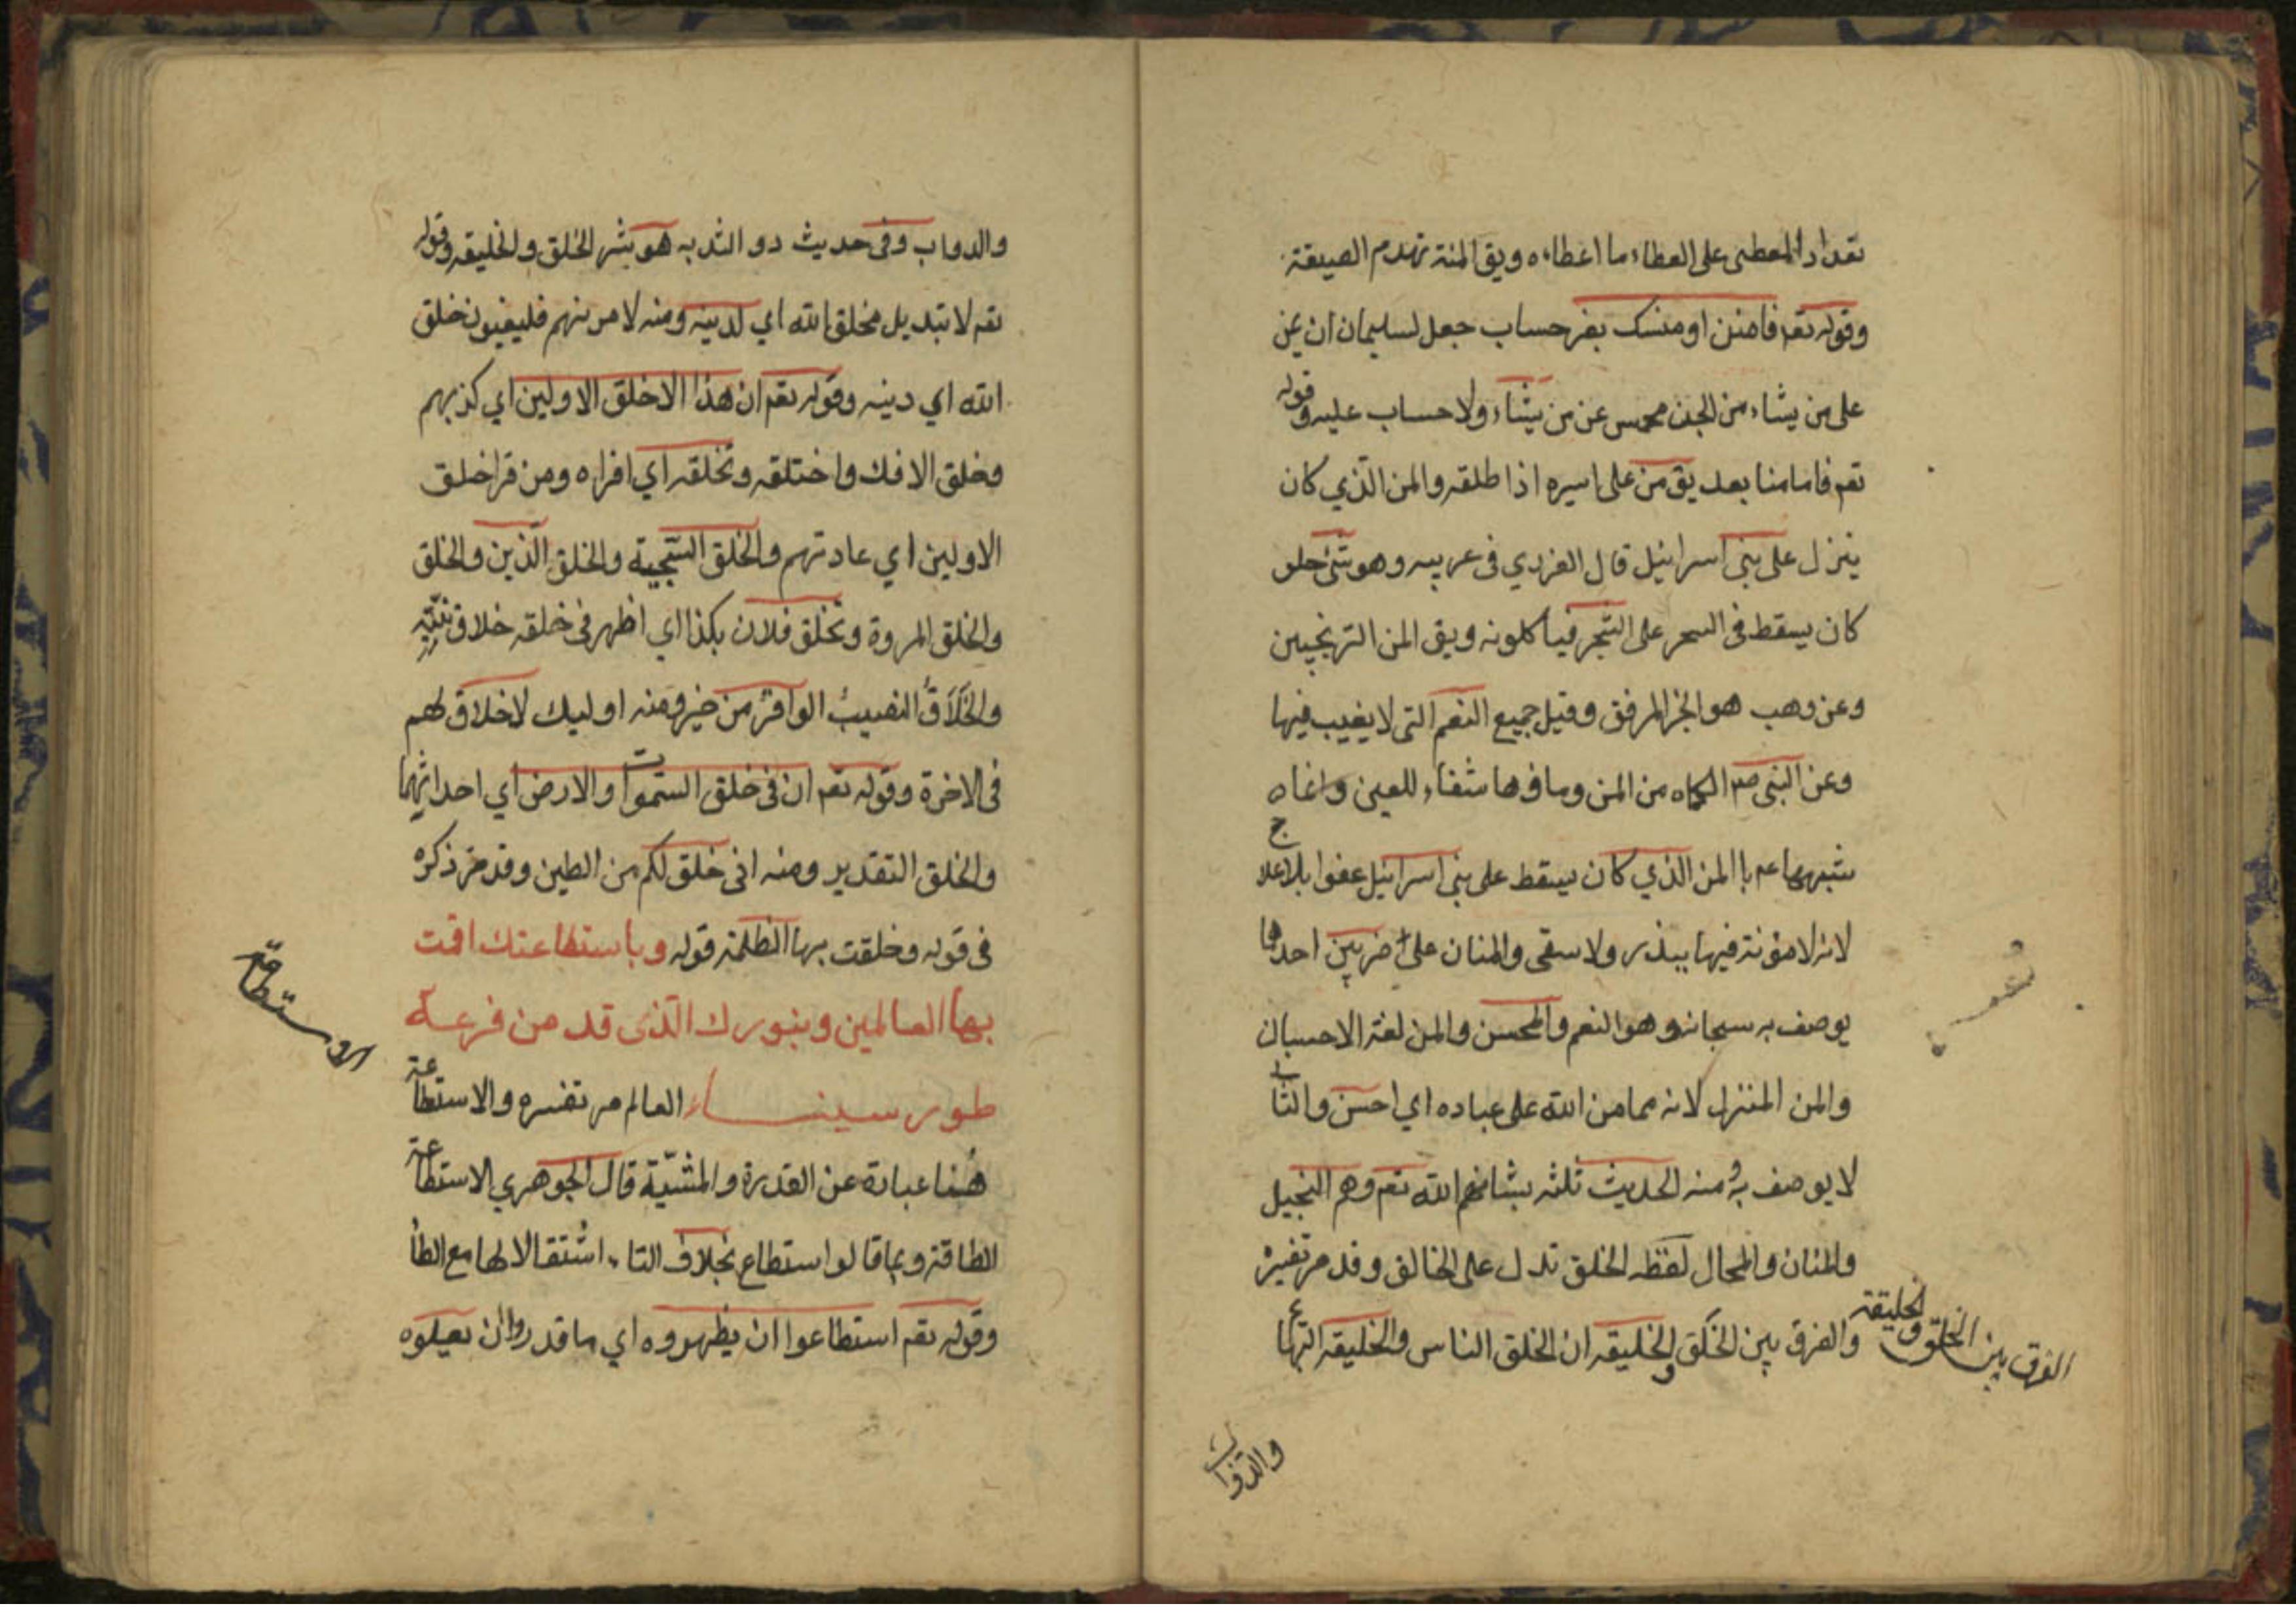 تعداد المعطى على العطاء ما اعطاه ويق المنة تهدم الصيقة
وقوله تعم فامنن او منسك بغير حساب جعل لسليمان ان يمن
على من يشاء من الجن عن من يشاء ولا حساب عليه وقوله
تعم فاما منا بعد يق من على اسيره اذا طلقه والمن الذي كان
ينزل على بني اسرائيل قال في وهو شئ حلو
كان يسقط في السحر على الشجر فيأكلونه ويق المن الترنجبين
وعن وهب هو الخبز المرفق وقيل جميع النعم التى لا يغيب فيها
وعن النبي صم الكماه من المن وماؤها شفاء للعين وانماه
شبهها عم با المن الذي كان يسقط على بني اسرائيل عفوا بلا علاج
لانه لا مؤنة فيها ببذر ولا سقى والمنان على ضربين احدهما
يوصف به سبحانه وهو المنعم والمحسن والمن لغة الاحسان
والمن المنزل لانه مما من الله على عباده اي احسن والثانى
لا يوصف به ومنه الحديث ثلثه يشناهم الله تعم وهم البخيل
والمنان والمحال لفظه الخلق تدل على الخالق وقد مر تفسيره
والفرق بين الخلق والخليقه ان الخلق الناس والخليقه البهائم
الفرق بين الخلق والخليقة
والدواب
والدواب وفى حديث ذو الثديه هو شر الخلق والخليقه وقوله
تعم لا تبديل لخلق الله اي لدينه ومنه لامرنهم فليغيرن خلق
الله اي دينه وقوله تعم ان هذا الا خلق الاولين اي كذبهم
وخلق الافك واختلقه وتخلقه اي افتراه ومن قرا خلق
الاولين اي عادتهم والخلق السجية والخلق الدين والخلق
والخلق المروة وتخلق فلان بكذا اي اظهر فى خلقه خلاف نيته
والخَلَاقُ النصيبُ الوافرُ من خير ومنه اوليك لا خلاق لهم
فى الاخرة وقوله تعم ان فى خلق السموات والارض اي احداثهما
والخلق التقدير ومنه انى خلق لكم من الطين وقد مر ذكره
فى قوله وخلقت بها الظلمة قوله وباستطاعتك اقمت
بها العالمين وبنورك الذى قد من فرعه
طور سيناء العالم مر تفسيره والاستطاعة
هُنا عبارة عن القدرة والمشيّة قال الجوهري الاستطاعة
الطاقة وبما قالوا استطاع بخلاف التاء اشتقالا لها مع الطأ
وقوله تعم استطاعوا ان يظهروه اي ما قدروا ان يعيلوه
الاستطاعة